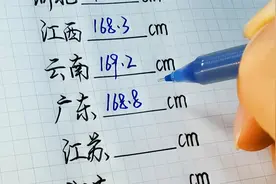 江西 168.3 cm
云南 169.2 cm
广东 168.8 cm
江苏 cm